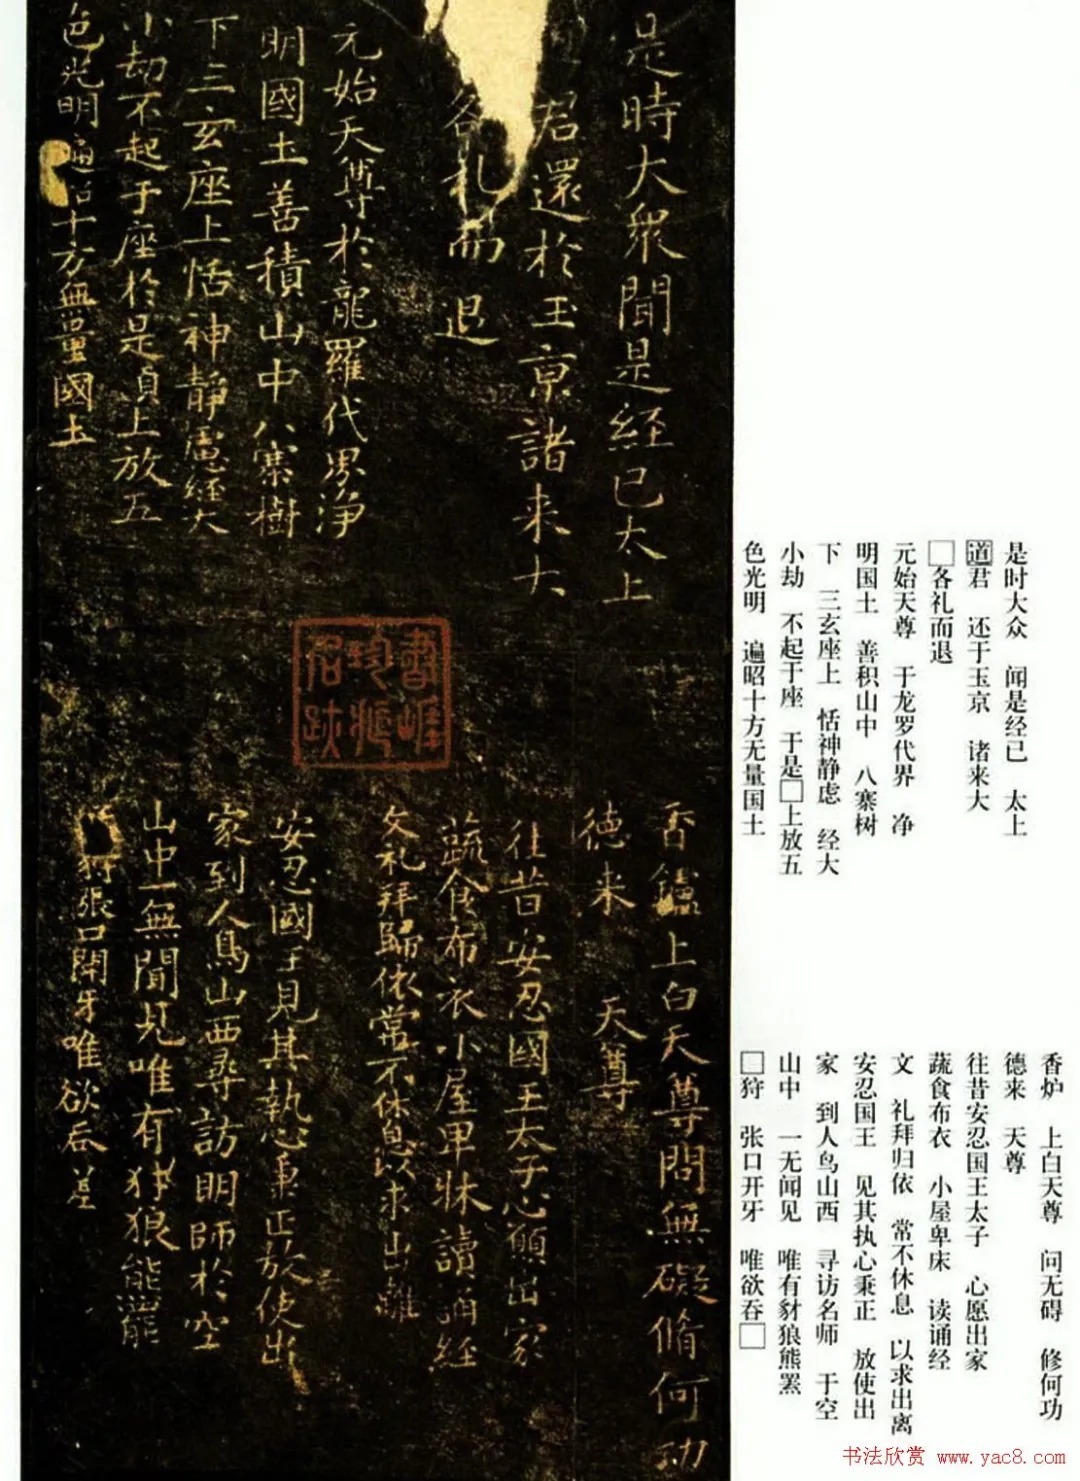 是時大眾聞是經已太上
君還於玉京諸來大
各礼而退
元始天尊於龍羅代界净
明國土善積山中八寨樹
下三玄座上恬神静慮經大
小劫不起于座於是貞上放五
色光明遍十方無量國土
書崖
珍藏
名跡
香鑪上白天尊問無礙脩何功
德来 天尊
往昔安忍國王太子心願出家
蔬食布衣小屋卑牀讀誦經
文礼拜歸依常不休息以求山離
安忍國王見其執心秉正放使出
家到人鳥山西尋訪明師於空
山中一無聞見唯有犲狼熊羆
狩張口開牙唯欲吞
是时大众 闻是经已 太上
道君 还于玉京 诸来大
□各礼而退
元始天尊 于龙罗代界 净
明国土 善积山中 八寨树
下 三玄座上 恬神静虑 经大
小劫 不起于座 于是□上放五
色光明 遍昭十方无量国土
香炉 上白天尊 问无碍 修何功
德来 天尊
往昔安忍国王太子 心愿出家
蔬食布衣 小屋卑床 读诵经
文 礼拜归依 常不休息 以求出离
安忍国王 见其执心秉正 放使出
家 到人鸟山西 寻访名师 于空
山中 一无闻见 唯有豺狼熊罴
□狩 张口开牙 唯欲吞□
书法欣赏 www.yac8.com